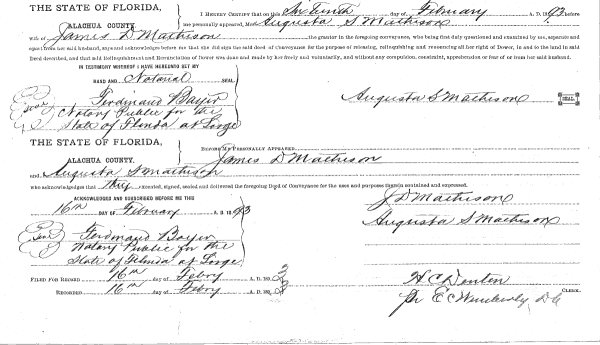 THE STATE OF FLORIDA,
ALACHUA COUNTY.
I HEREBY CERTIFY That on this Sixteenth day of February A. D. 1893 before
me personally appeared, Mrs Augusta S Mathison
wife of James D Mathison the grantor in the foregoing conveyance, who being first duly questioned and examined by me, separate and
apart from her said husband, says and acknowledges before me that she did sign the said deed of Conveyance for the purpose of releasing, relinquishing and renouncing all her right of Dower, in and to the land in said
Deed described, and that said Relinquishment and Renunciation of Dower was done and made by her freely and voluntarily, and without any compulsion, constraint, apprehension or fear of or from her said husband.
IN TESTIMONY WHEREOF I HAVE HEREUNTO SET MY
HAND AND Notarial SEAL
Seal Ferdinand Bayer
Notary Public for the
State of Florida at Large
Augusta S Mathison SEAL.
THE STATE OF FLORIDA,
ALACHUA COUNTY.
BEFORE ME PERSONALLY APPEARED James D Mathison
and Augusta S Mathison
who acknowledges that they executed, signed, sealed and delivered the foregoing Deed of Conveyance for the uses and purposes therein contained and expressed.
ACKNOWLEDGED AND SUBSCRIBED BEFORE ME THIS
16th DAY OF February A. D. 1893
J D Mathison
Augusta S. Mathison
Seal Ferdinand Bayer
Notary Public for the
State of Florida at Large
FILED FOR RECORD 16th day of Febry A. D. 1893
RECORDED 16th day of Febry A. D. 1893
H C Denton CLERK.
Pr E C Wimberly D C